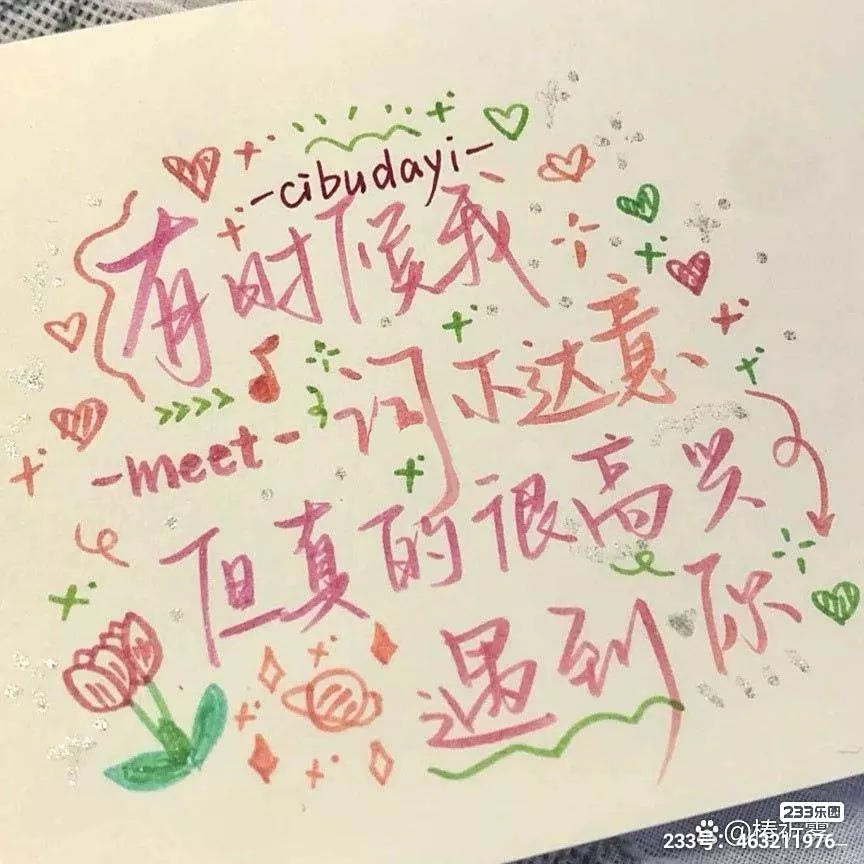 -cibudayi-
有时候我
词不达意
-meet-
但真的很高兴
遇到你
233乐园
@椿祈雾
233号：463211976